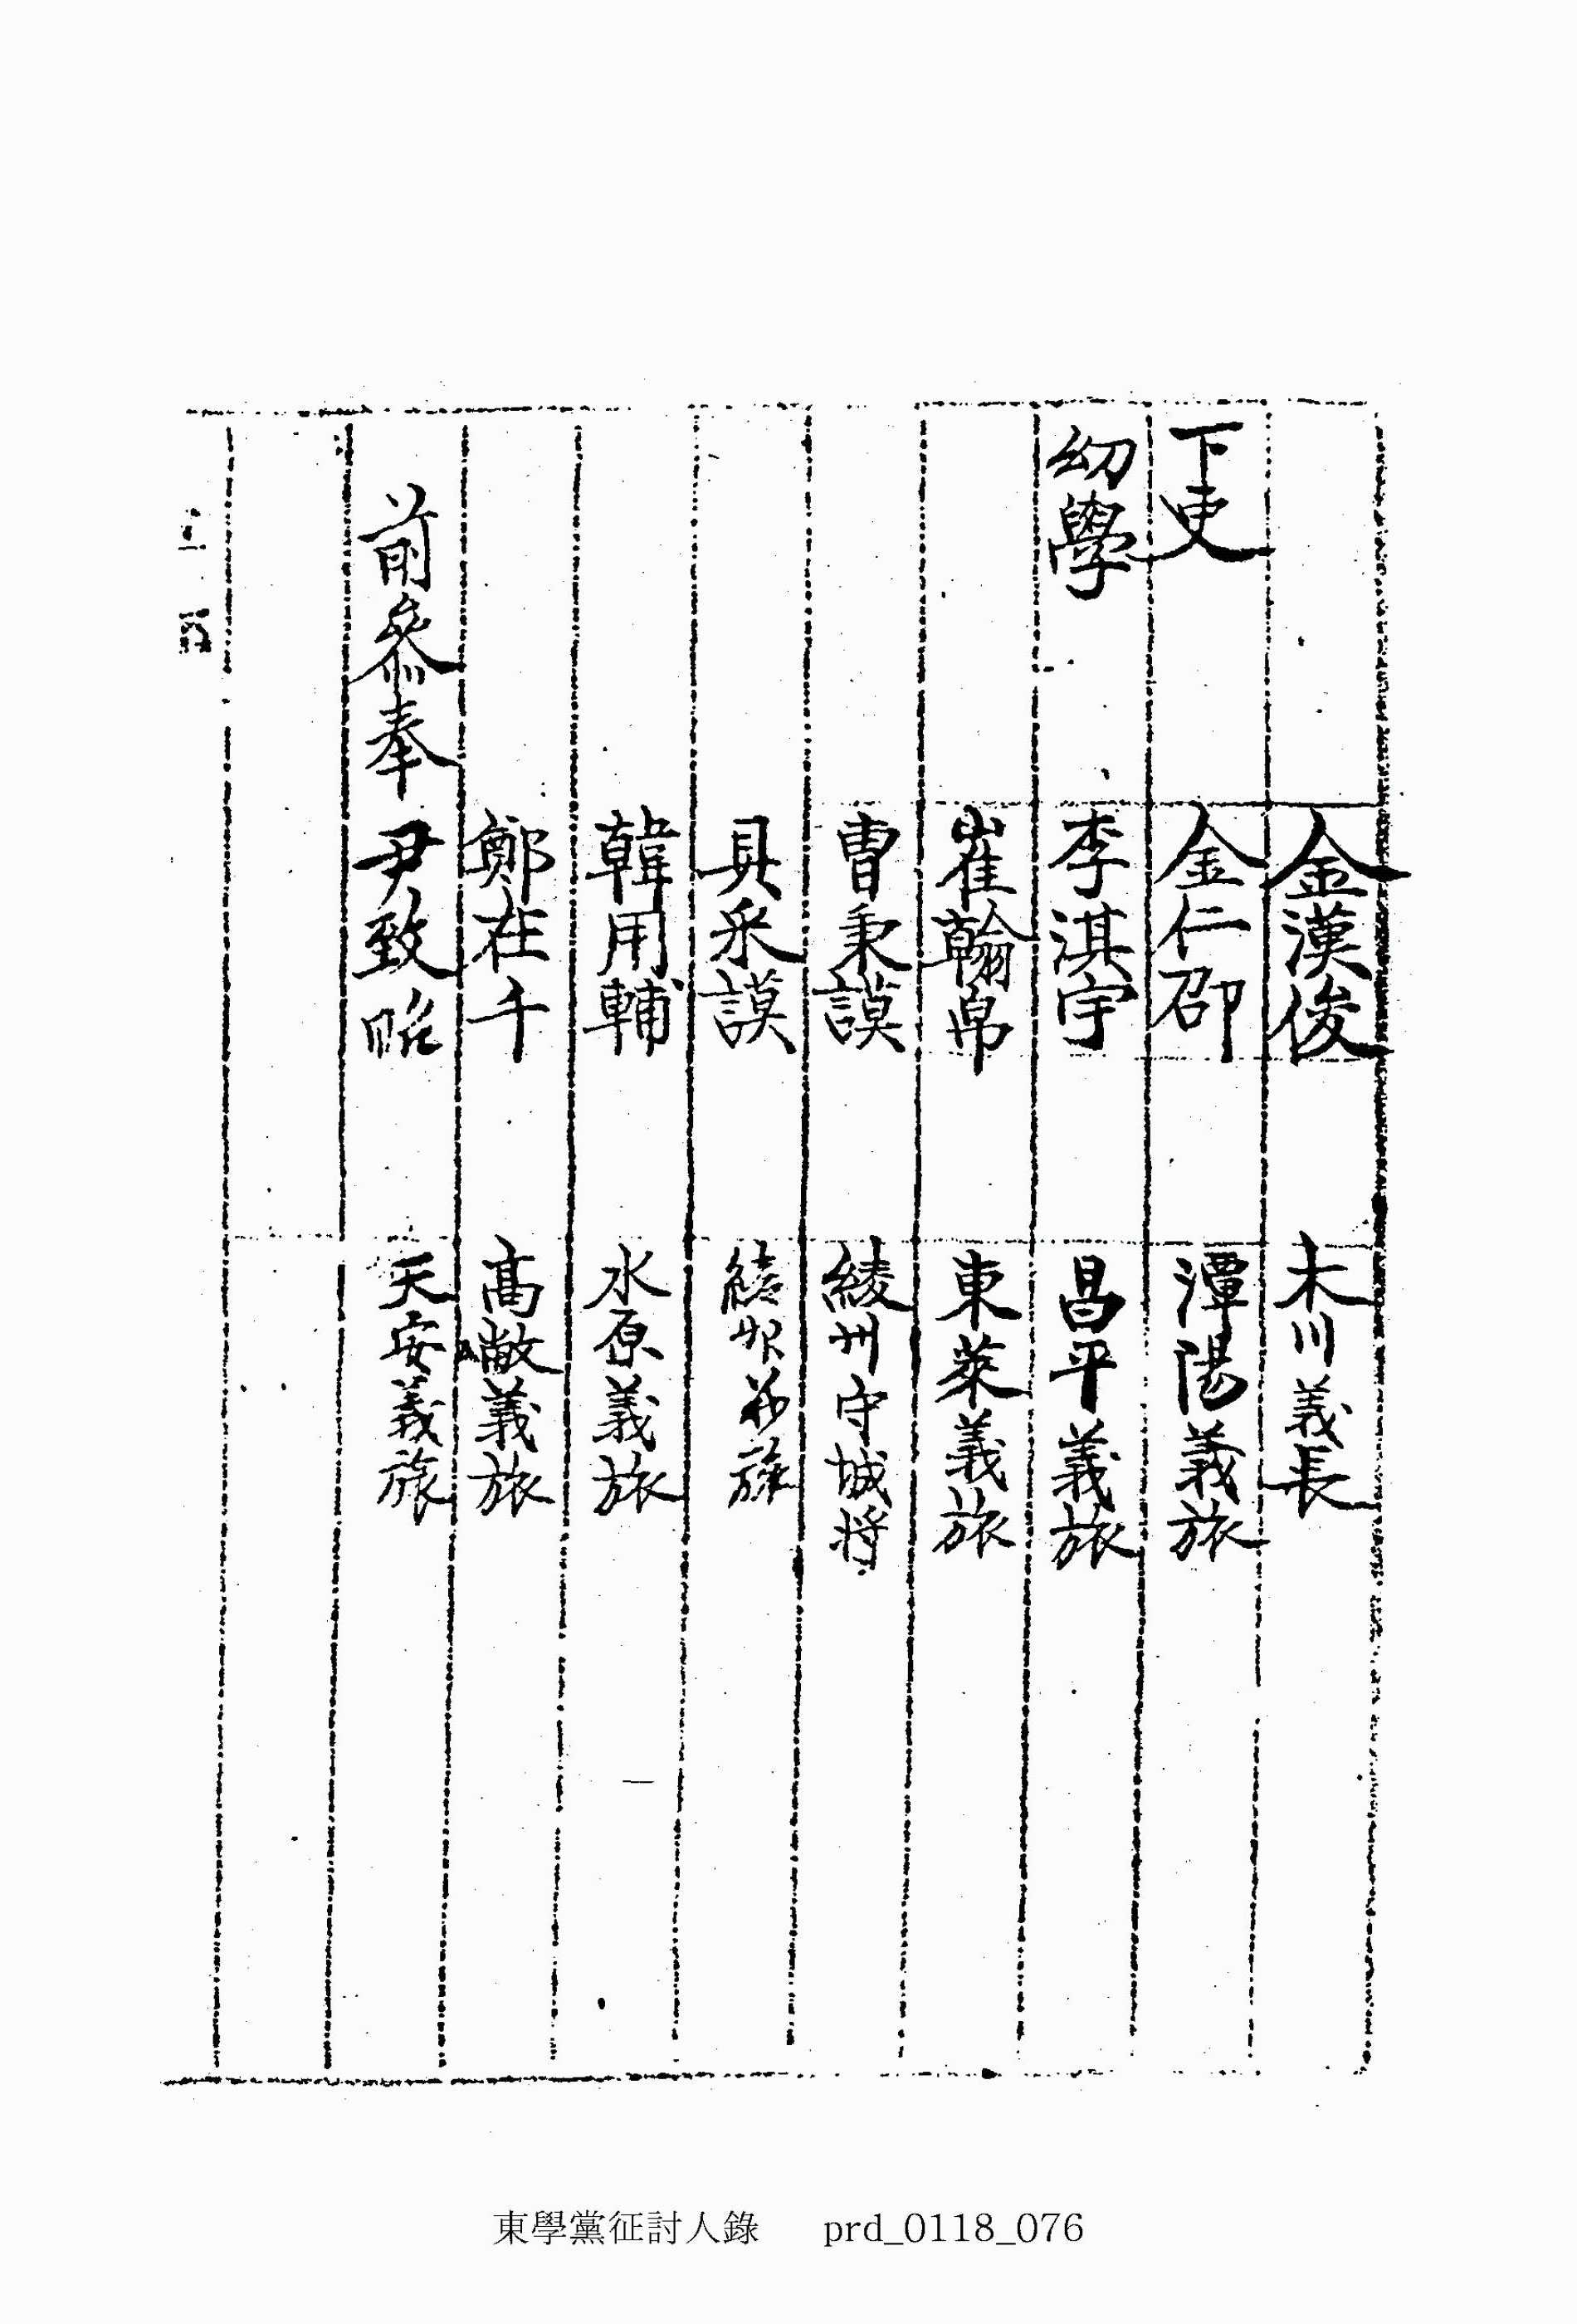 金漢俊 木川義長
下吏 金仁邵 潭陽義旅
幼學 李淇宇 昌平義旅
崔翰帛 東萊義旅
曺秉謨 綾州守城將
具采謨 綾州義旅
韓用輔 水原義旅
鄭在千 高敞義旅
前參奉 尹致昭 天安義旅
東學黨征討人錄 prd_0118_076